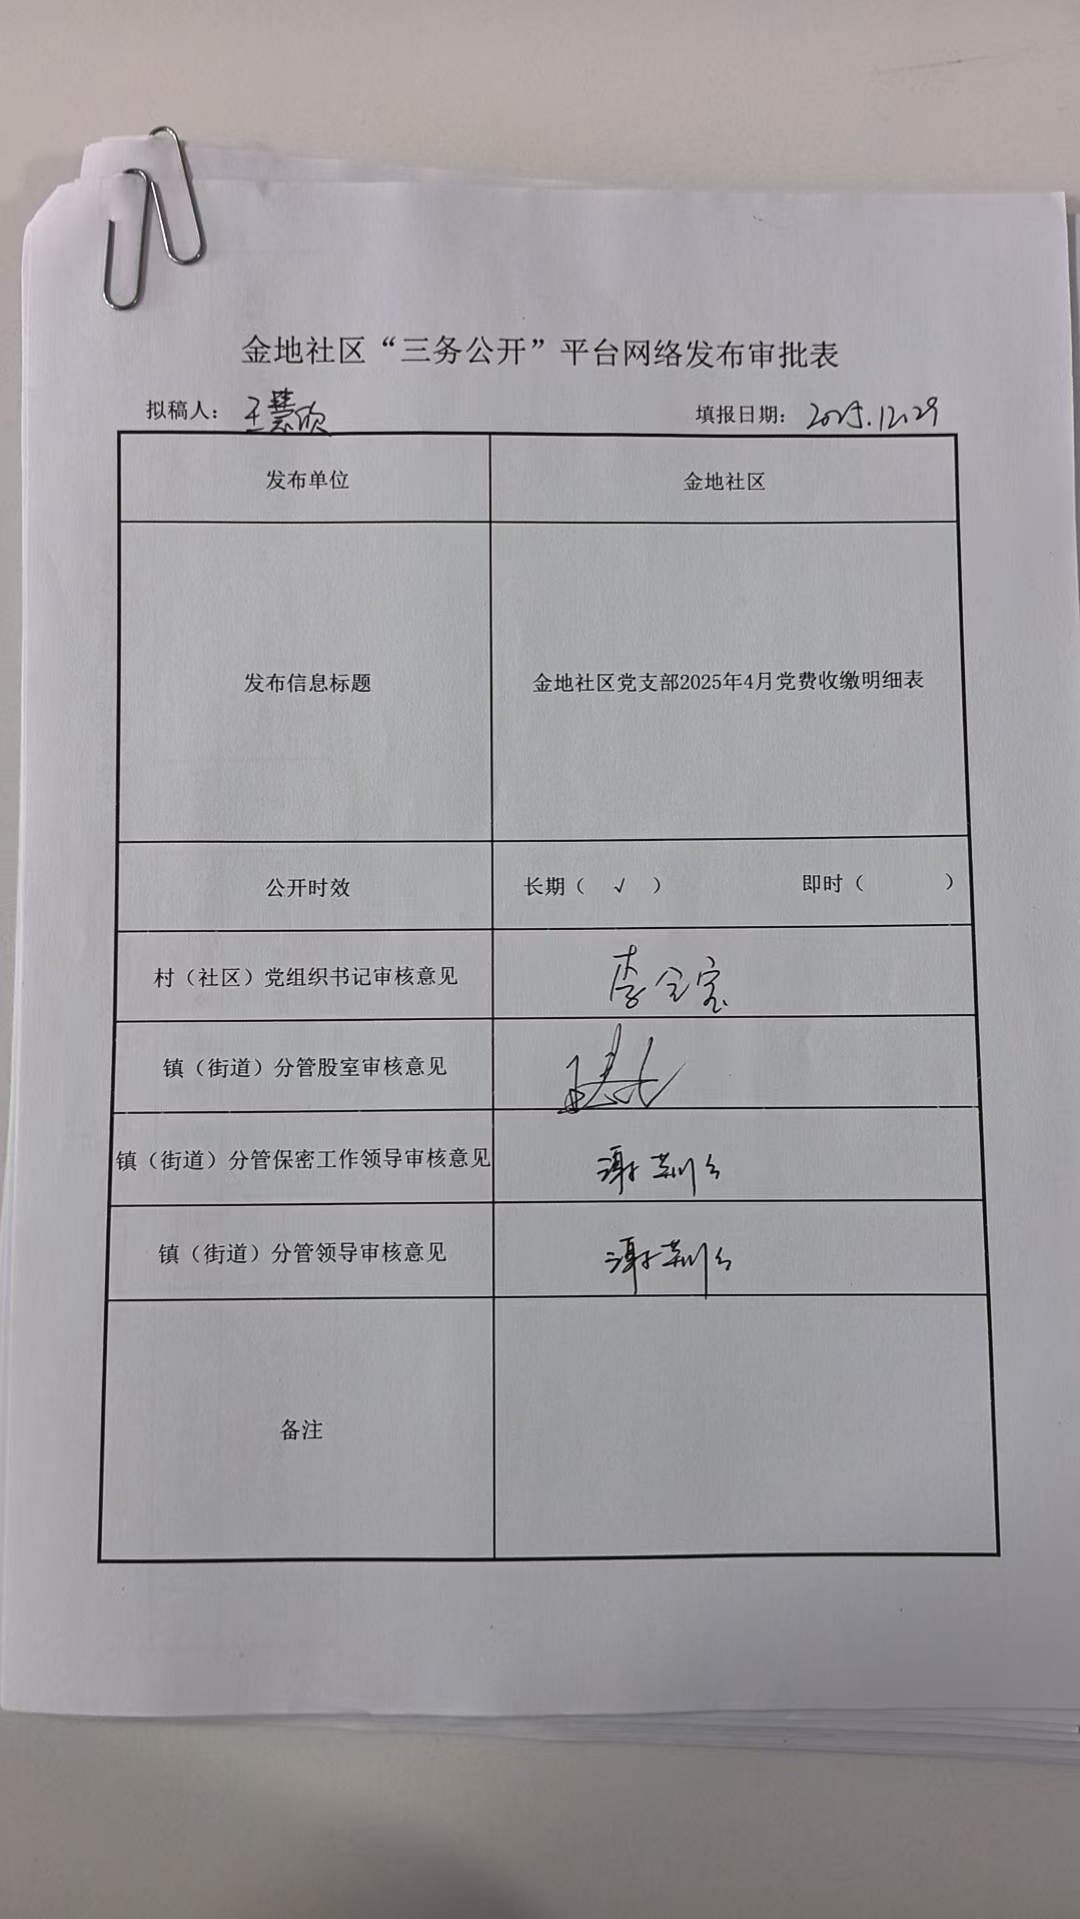 金地社区“三务公开”平台网络发布审批表
拟稿人： 王慧欣 填报日期： 2025.12.29
发布单位 金地社区
发布信息标题 金地社区党支部2025年4月党费收缴明细表
公开时效 长期（ √ ） 即时（ ）
村（社区）党组织书记审核意见 李全宝
镇（街道）分管股室审核意见
镇（街道）分管保密工作领导审核意见
镇（街道）分管领导审核意见
备注